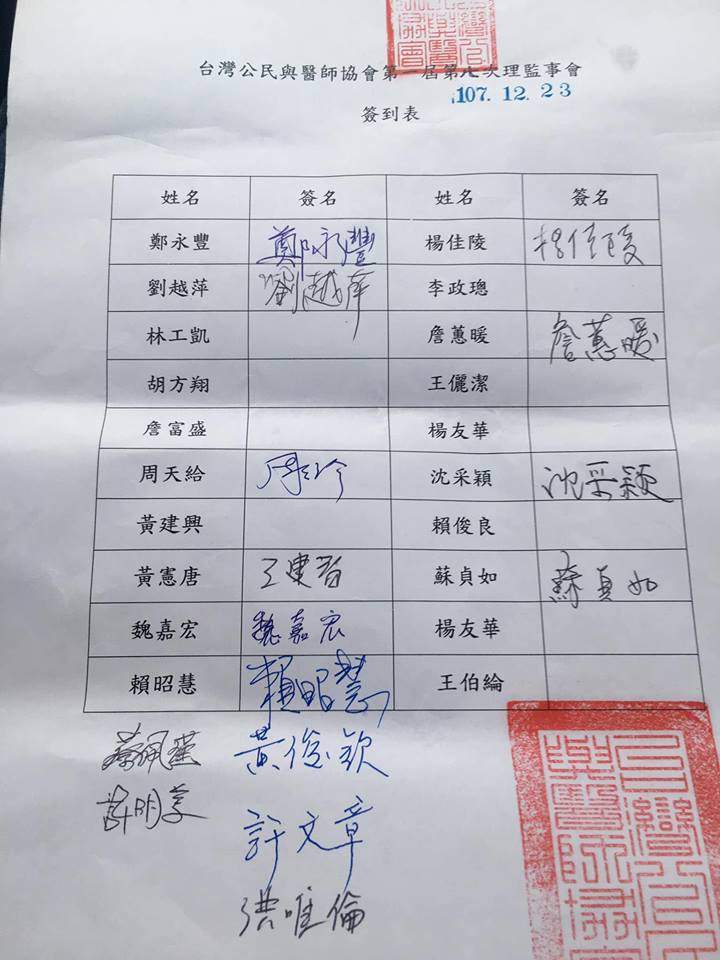 台灣公民與醫師協會第一屆第七次理監事會
107. 12. 23
簽到表
姓名 簽名 姓名 簽名
鄭永豐 鄭永豐 楊佳陵 楊佳陵
劉越萍 劉越萍 李政璁
林工凱 詹蕙暖 詹蕙暖
胡方翔 王儷潔
詹富盛 楊友華
周天給 沈采穎 沈采穎
黃建興 賴俊良
黃憲唐 蘇貞如 蘇貞如
魏嘉宏 魏嘉宏 楊友華
賴昭慧 賴昭慧 王伯綸
黃俊欽
許文章
洪唯倫
台灣公民
與醫師協會